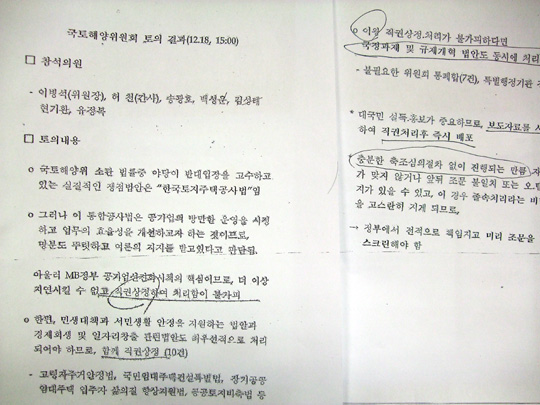 국토해양위원회 토의 결과(12.18, 15:00)
□ 참석의원
- 이병석(위원장), 허 천(간사), 송광호, 백성운, 김성태
현기환, 유정복
□ 토의내용
o 국토해양위 소관 법률중 야당이 반대입장을 고수하고
있는 실질적인 쟁점법안은 "한국토지주택공사법"임
o 그러나 이 통합공사법은 공기업의 방만한 운영을 시정
하고 업무의 효율성을 개선하고자 하는 것이므로,
명분도 뚜렷하고 여론의 지지를 받고있다고 판단됨.
아울러 MB정부 공기업선진화시책의 핵심이므로, 더 이상
지연시킬 수 없고 직권상정하여 처리함이 불가피
o 한편, 민생대책과 서민생활 안정을 지원하는 법안과
경제회생 및 일자리창출 관련법안도 최우선적으로 처리
되어야 하므로, 함께 직권상정 (10건)
- 고령자주거안정법, 국민임대주택건설특별법, 장기공공
임대주택 입주자 삶의질 향상지원법, 공공토지비축법 등
o 이왕 직권상정.처리가 불가피하다면
국정과제 및 규제개혁 법안도 동시에 처리
- 불필요한 위원회 통폐합(7건), 특별행정기관
* 대국민 설득.홍보가 중요하므로, 보도자료를
하여 직권처리후 즉시 배포
* 충분한 축조심의절차 없이 진행되는 만큼,
가 맞지 않거나 앞뒤 조문 불일치 또는 오탈
지가 있을 수 있고, 이 경우 졸속처리라는 비
을 고스란히 지게 되므로,
→ 정부에서 전적으로 책임지고 미리 조문을
스크린해야 함